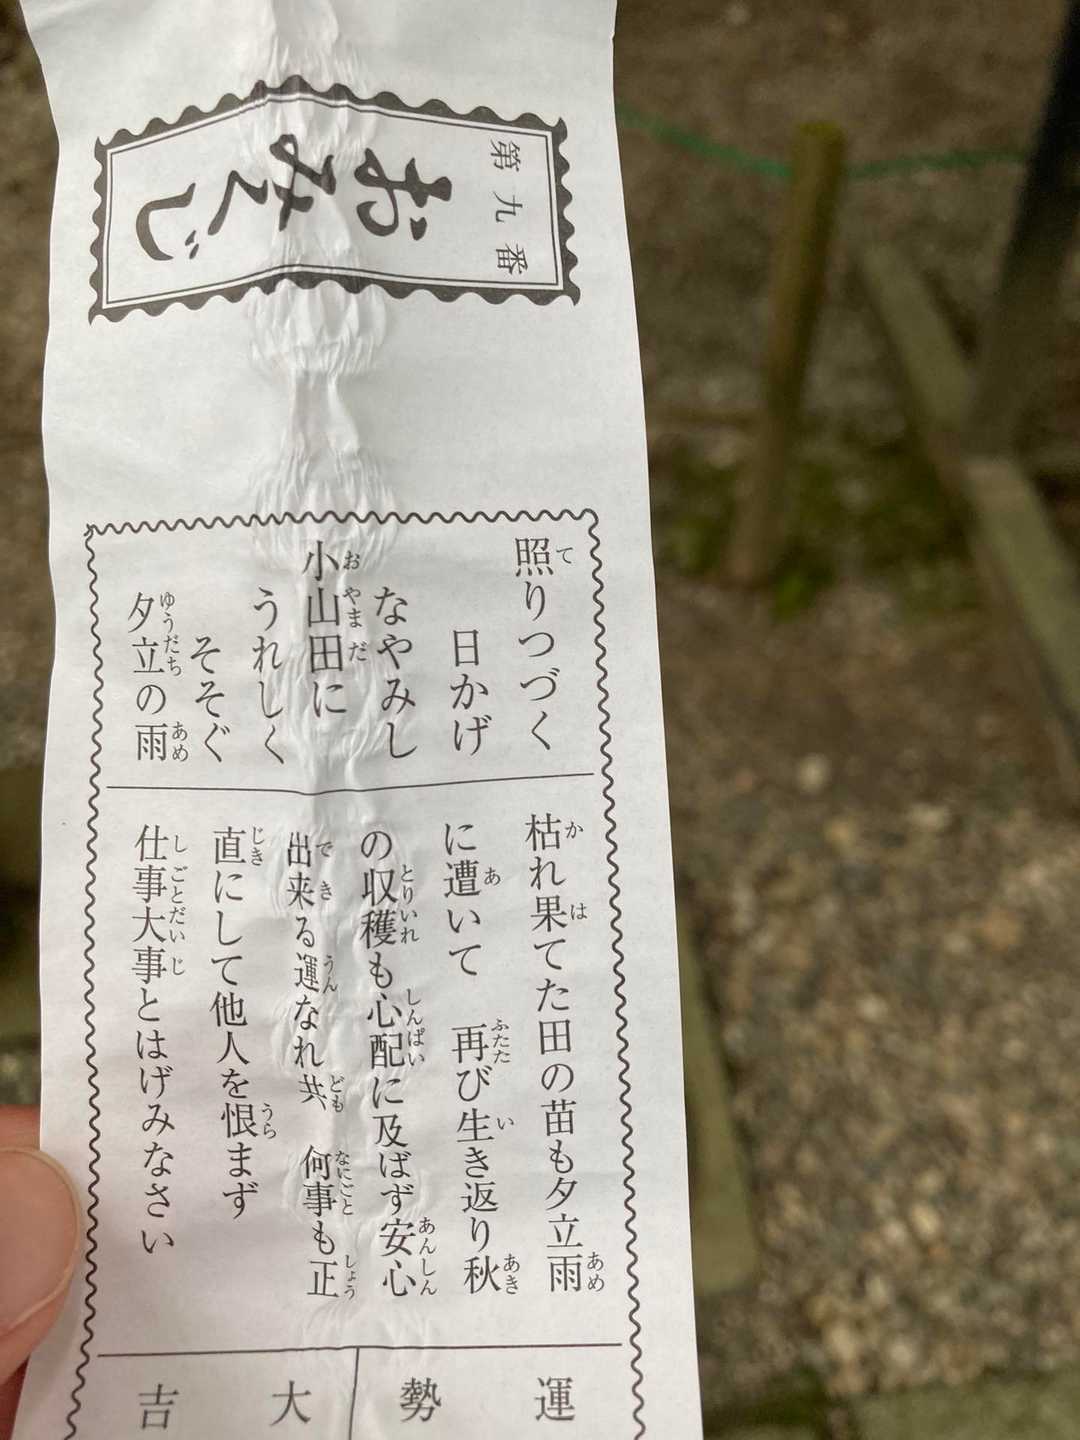 第九番
おみくじ
照りつづく
日かげ
なやみし
小山田に
うれしく
そそぐ
夕立の雨
枯れ果てた田の苗も夕立雨
に遭いて　再び生き返り秋
の収穫も心配に及ばず安心
出来る運なれ共　何事も正
直にして他人を恨まず
仕事大事とはげみなさい
運勢
大吉